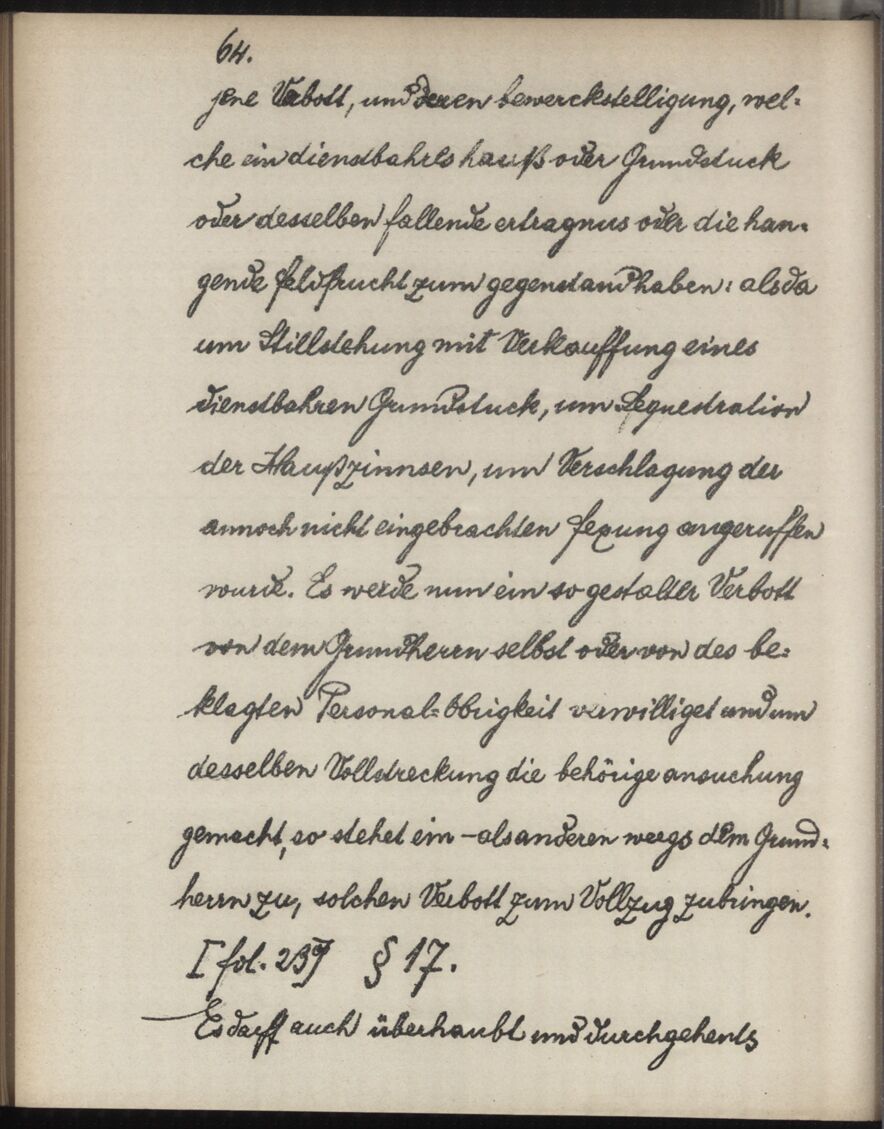 64.
jene Verbott, und deren bewerckstelligung, wel=
che ein dienstbahres hauß oder Grundstuck
oder desselben fallende ertragnus oder die han=
gende feldfrucht zum gegenstand haben: als da
um Stillstehung mit Verkauffung eines
dienstbahren Grundstuck, um Sequestration
der Haußzinnsen, um Verschlagung der
annoch nicht eingebrachten fexung angeruffen
wurde. Es werde nun ein so gestalter Verbott
von dem Grundherrn selbst oder von des be=
klagten Personal=Obrigkeit verwilliget und um
desselben Vollstreckung die behörige ansuchung
gemacht, so stehet ein - als anderen weegs dem Grund=
herrn zu, solchen Verbott zum Vollzug zubringen.
[fol. 239] § 17.
Es darff auch überhaubt und durchgehents